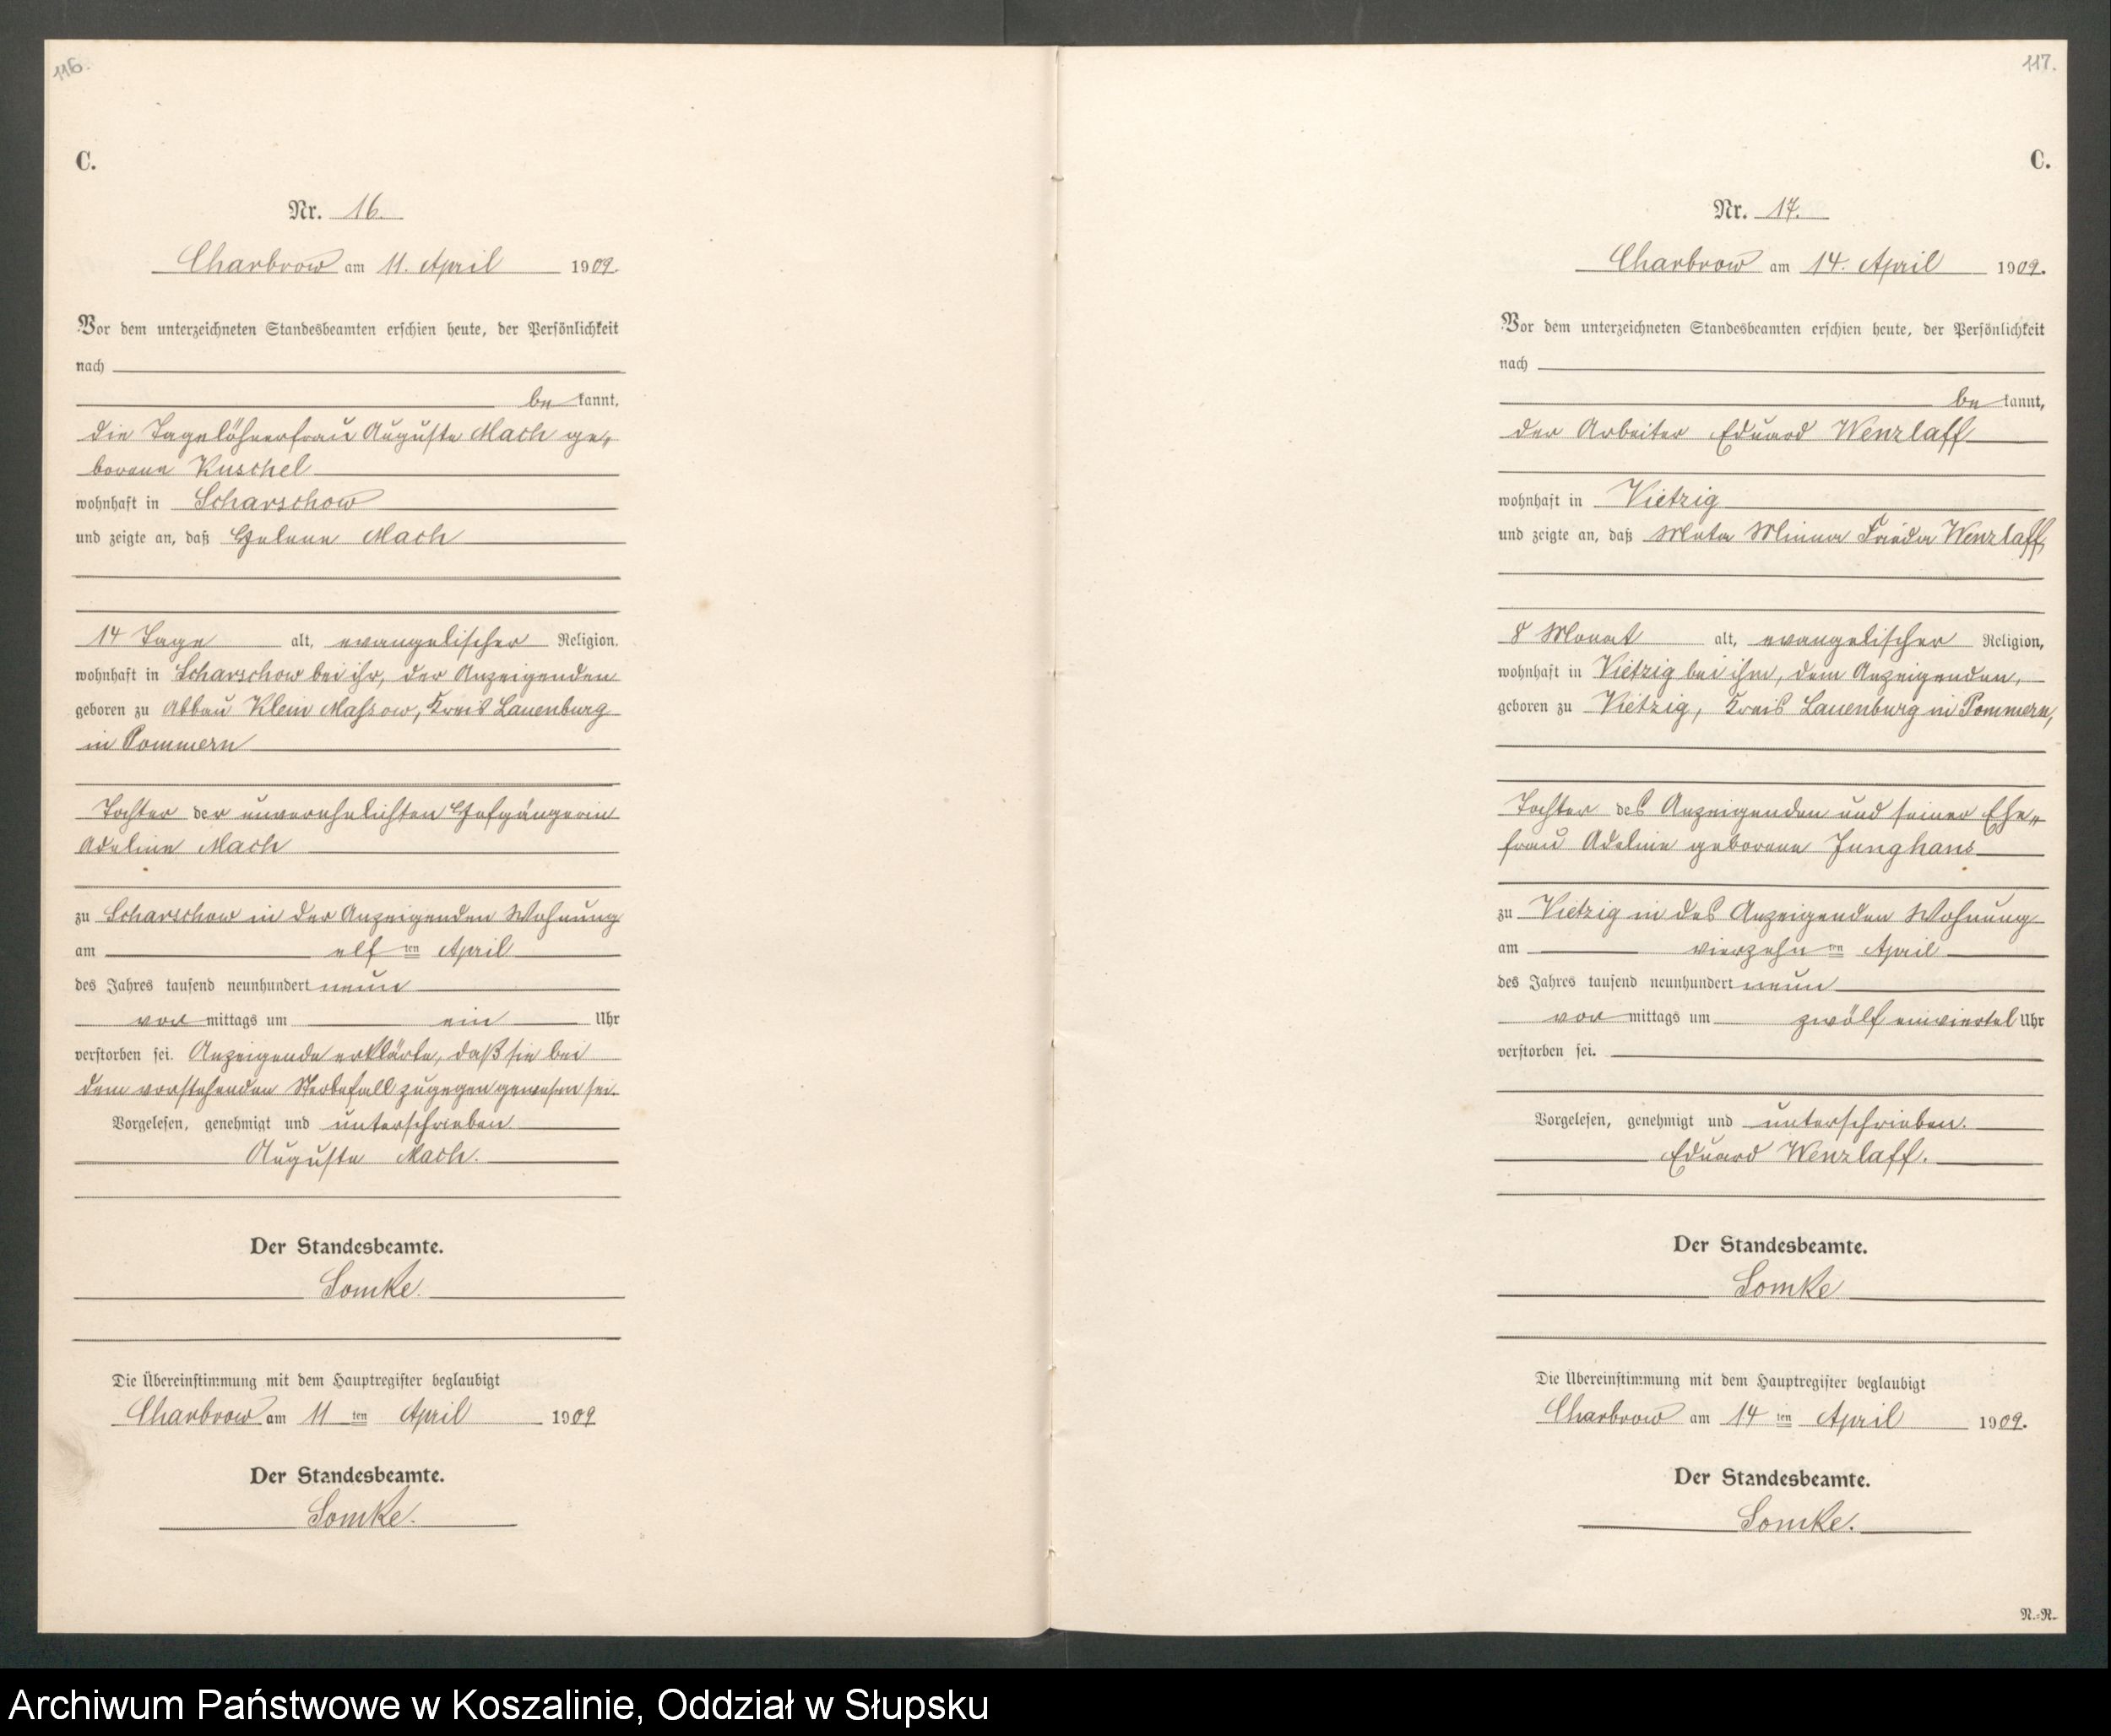 116.
C.
Nr. 16.
Charbrow am 11. April 1909.
Vor dem unterzeichneten Standesbeamten erschien heute, der Persönlichkeit
nach
be kannt,
die Tagelöhnerfrau Auguste Mach ge-
borene Kuschel
wohnhaft in Scharschow
und zeigte an, daß Helene Mach
14 Tage alt, evangelischer Religion,
wohnhaft in Scharschow bei ihr, der Anzeigenden
geboren zu Abbau Klein Massow, Kreis Lauenburg
in Pommern
Tochter der unverehelichten Hofgängerin
Adeline Mach
zu Scharschow in der Anzeigenden Wohnung
am elf ten April
des Jahres tausend neunhundert neun
vor mittags um ein Uhr
verstorben sei. Anzeigende erklärte, daß sie bei
dem vorstehenden Sterbefall zugegen gewesen sei.
Vorgelesen, genehmigt und unterschrieben
Auguste Mach.
Der Standesbeamte.
Somke.
Die Übereinstimmung mit dem Hauptregister beglaubigt
Charbrow am 11 ten April 1909
Der Standesbeamte.
Somke.
117.
C.
Nr. 17.
Charbrow am 14. April 1909.
Vor dem unterzeichneten Standesbeamten erschien heute, der Persönlichkeit
nach
be kannt,
der Arbeiter Eduard Wenzlaff
wohnhaft in Vietzig
und zeigte an, daß Meta Minna Frieda Wenzlaff,
8 Monat alt, evangelischer Religion,
wohnhaft in Vietzig bei ihm, dem Anzeigenden,
geboren zu Vietzig, Kreis Lauenburg in Pommern,
Tochter des Anzeigenden und seiner Ehe-
frau Adeline geborene Junghans
zu Vietzig in des Anzeigenden Wohnung
am vierzehn ten April
des Jahres tausend neunhundert neun
vor mittags um zwölf einviertel Uhr
verstorben sei.
Vorgelesen, genehmigt und unterschrieben.
Eduard Wenzlaff.
Der Standesbeamte.
Somke
Die Übereinstimmung mit dem Hauptregister beglaubigt
Charbrow am 14 ten April 1909.
Der Standesbeamte.
Somke.
N.-R.
Archiwum Państwowe w Koszalinie, Oddział w Słupsku